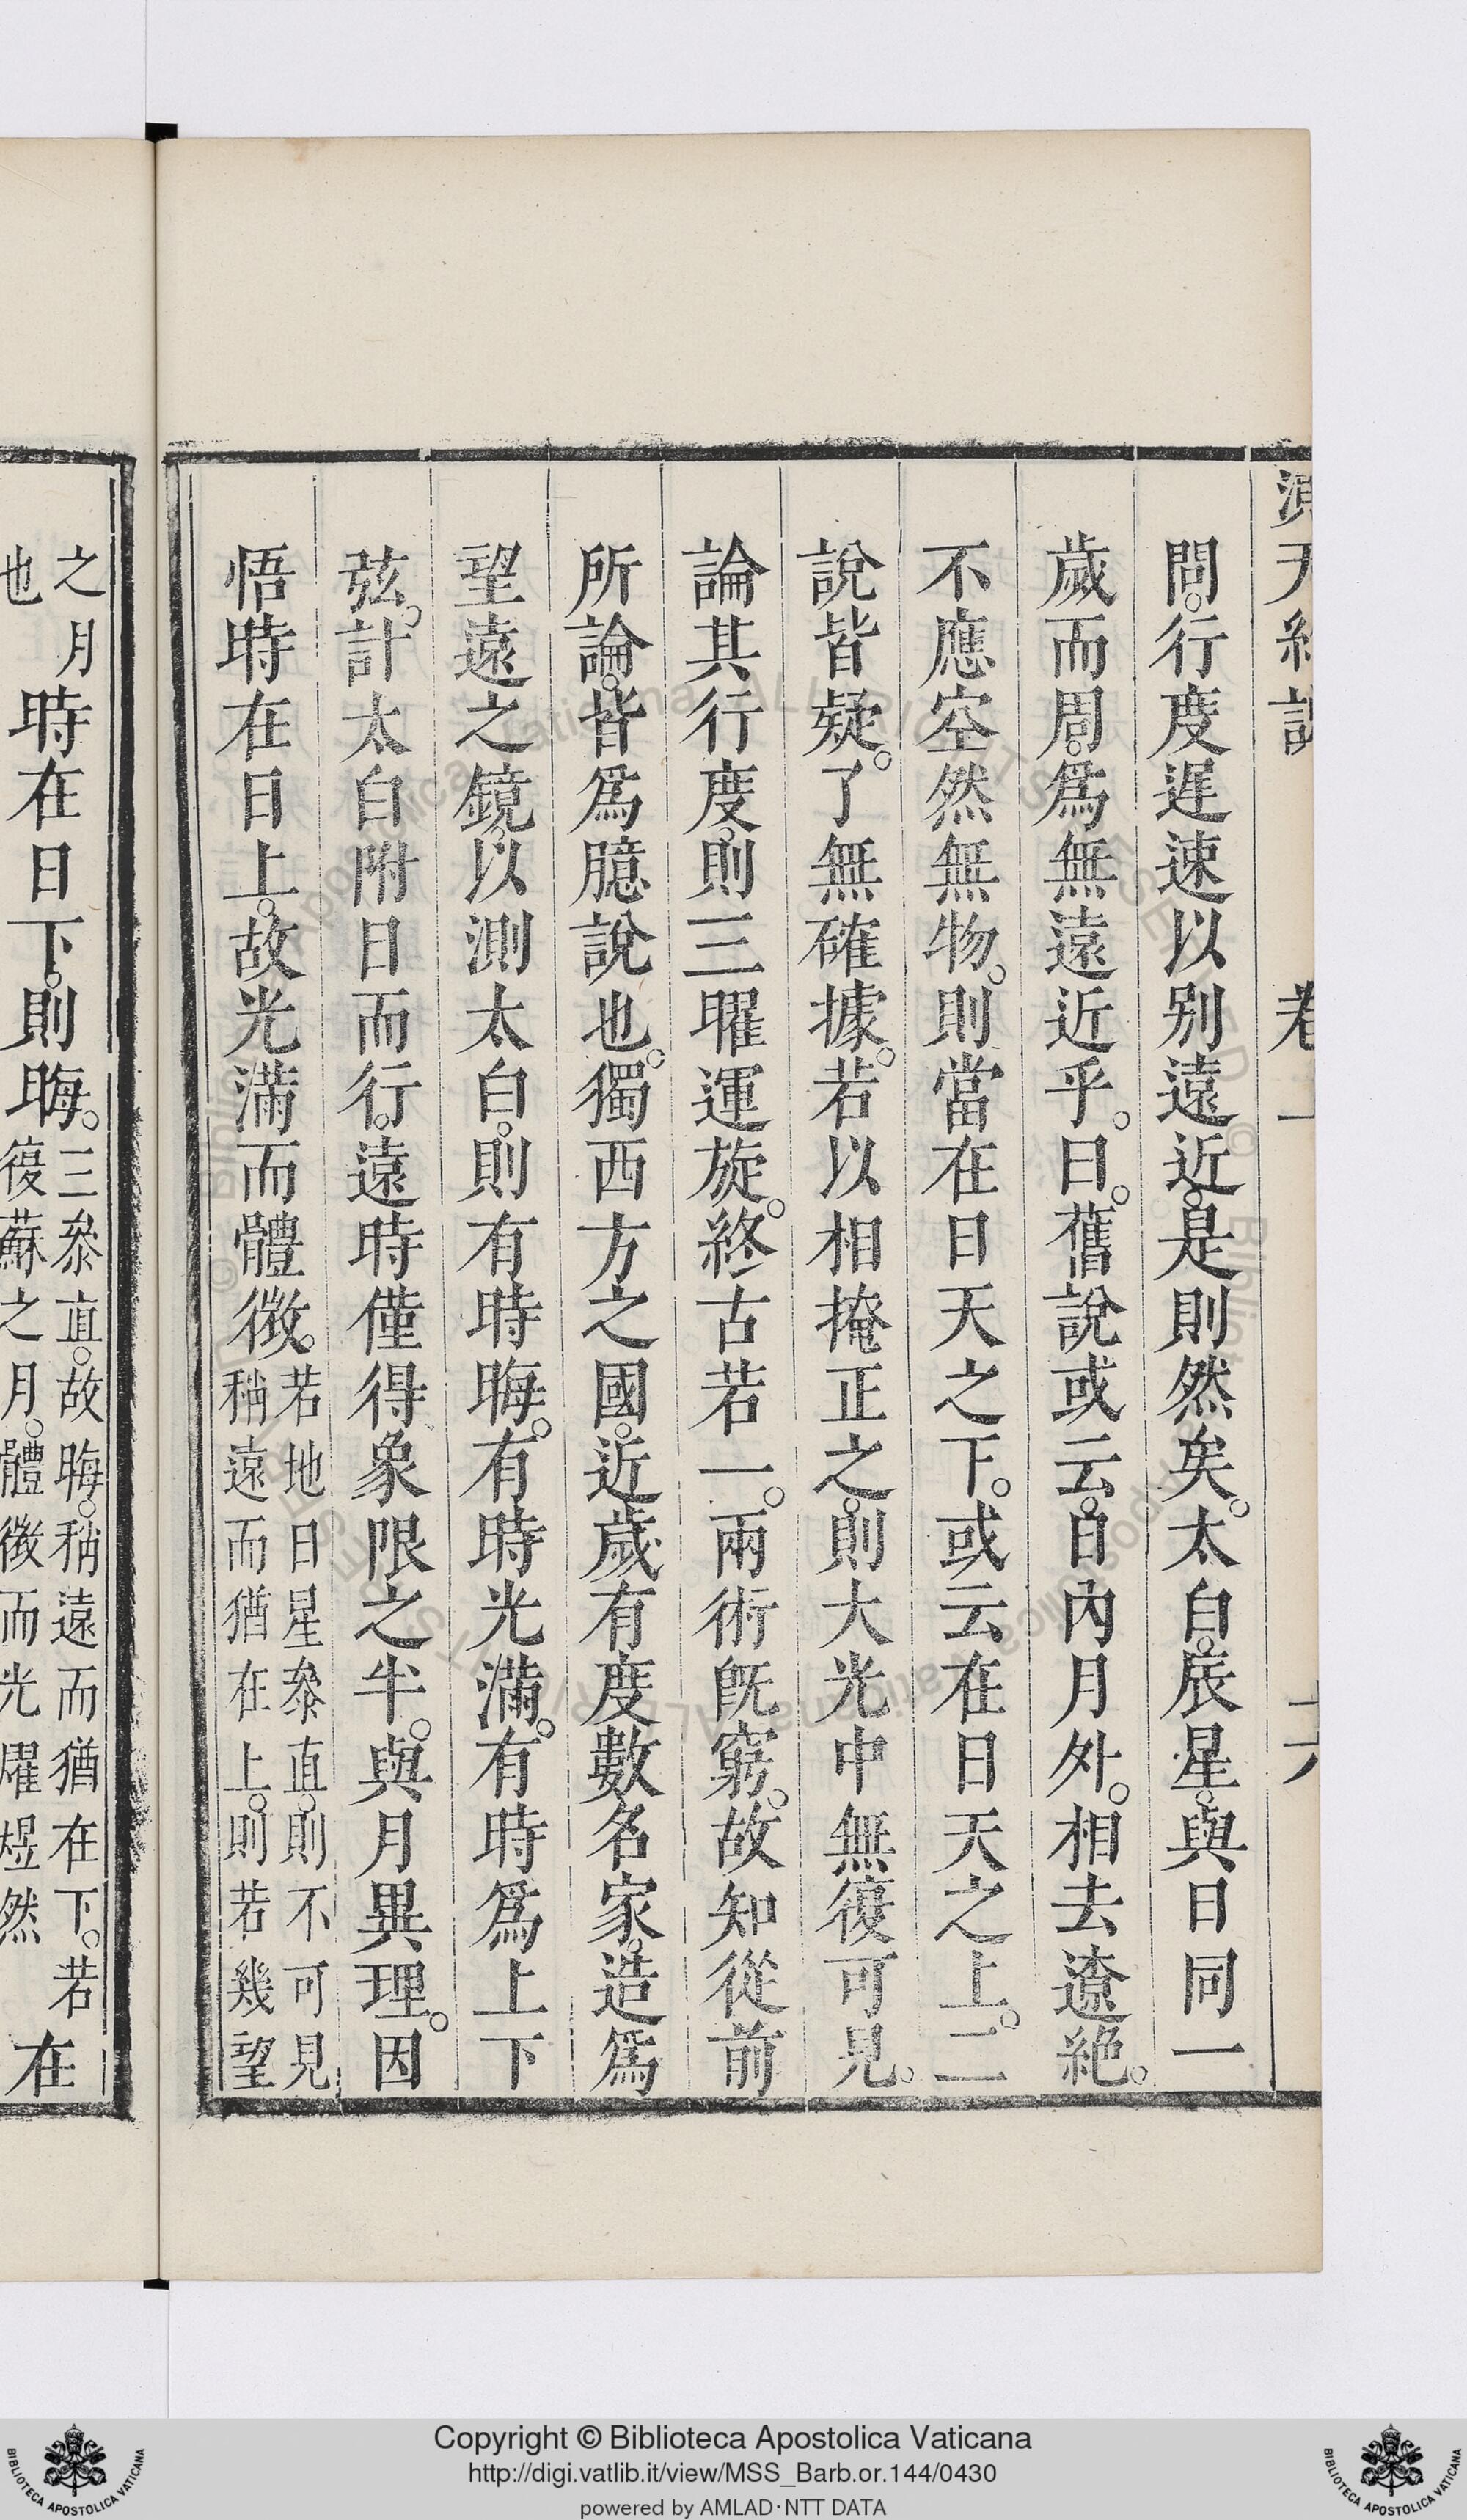 渾天
卷一
六
問。行度遲速以别遠近。是則然矣。太白。辰星。與日同一
歲而周。爲無遠近乎。曰。舊說或云。日內月外。相去遼絶。
不應空然無物。則當在日天之下。或云在日天之上。二
說皆疑。了無確據。若以相掩正之。則大光中無復可見。
論其行度。則三曜運旋。終古若一。兩術旣窮。故知從前
所論。皆爲臆說也。獨西方之國。近歲有度數名家。造爲
望遠之鏡。以測太白。則有時晦。有時光滿。有時爲上下
弦。計太白附日而行。遠時僅得象限之半。與月異理。因
悟時在日上。故光滿而體微。若地日星參直。則不可見
稍遠而猶在上。則若幾望
之月
也
時在日下。則晦。三參直。故晦。稍遠而猶在下。若
復蘇之月。體微而光耀煜然
在
Copyright © Biblioteca Apostolica Vaticana
http://digi.vatlib.it/view/MSS_Barb.or.144/0430
powered by AMLAD·NTT DATA
BIBLIOTECA APOSTOLICA VATICANA
BIBLIOTECA APOSTOLICA VATICANA